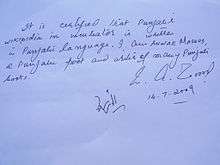 It is certified that Punjabi
wikipedia in incubator is written
in Punjabi language. I am Anwar Masood
a Punjabi poet and writer of many Punjabi
books.
14-7-2009